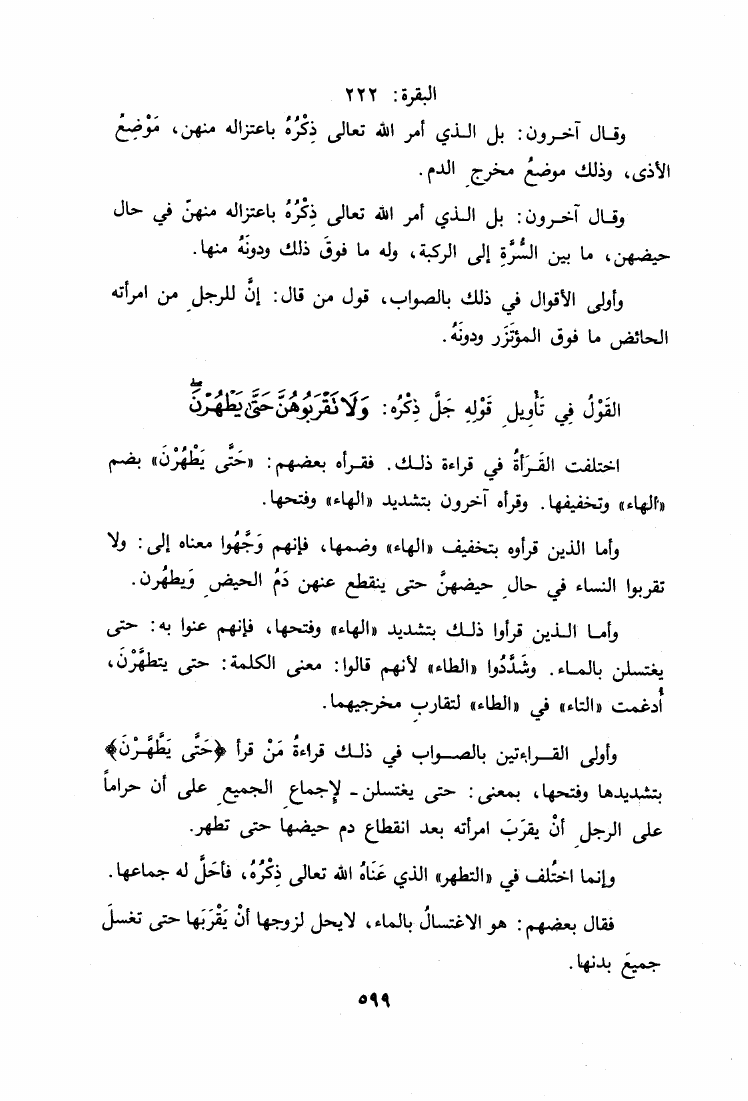 البقرة: ٢٢٢
وقـال آخـرون: بل الـذي أمر الله تعالى ذِكْرُهُ باعتزاله منهن، مَوْضِعُ
الأذى، وذلك موضعُ مخرجِ الدم.
وقـال آخـرون: بل الـذي أمر الله تعالى ذِكْرُهُ باعتزاله منهنّ في حال
حيضهن، ما بين السُّرَّةِ إلى الركبة، وله ما فوقَ ذلك ودونَهُ منها.
وأولى الأقوال في ذلك بالصواب، قول من قال: إنَّ للرجلِ من امرأته
الحائض ما فوق المؤتَزَر ودونَهُ.
القَوْلُ فِي تَأْوِيلِ قَوْلِهِ جَلَّ ذِكْرُه: وَلَا تَقْرَبُوهُنَّ حَتَّىٰ يَطْهُرْنَۖ
اختلفت القَـرَأةُ في قراءة ذلـك. فقـرأه بعضهم: «حَتَّى يَطْهُرْنَ» بضم
«الهاء» وتخفيفها. وقرأه آخرون بتشديد «الهاء» وفتحها.
وأما الذين قرأوه بتخفيف «الهاء» وضمها، فإنهم وَجَّهُوا معناه إلى: ولا
تقربوا النساء في حالِ حيضهنَّ حتى ينقطع عنهن دَمُ الحيضِ وَيطهُرن.
وأمـا الـذين قرأوا ذلـك بتشديد «الهاء» وفتحها، فإنهم عنوا به: حتى
يغتسلن بالمـاء. وشَدَّدُوا «الطاء» لأنهم قالوا: معنى الكلمة: حتى يتطهَّرْنَ،
أُدغمت «التاء» في «الطاء» لتقاربِ مخرجيهما.
وأولى القـــراءتين بالصـــواب في ذلـك قراءةُ مَنْ قرأ ﴿حَتَّى يَطَّهَّـرْنَ﴾
بتشديدها وفتحها، بمعنى: حتى يغتسلن - لِإجماعِ الجميعِ على أن حراماً
على الرجلِ أنْ يقرَبَ امرأته بعد انقطاع دم حيضها حتى تطهر.
وإنما اختُلف في «التطهر» الذي عَنَاهُ الله تعالى ذِكْرُهُ، فأحَلَّ له جماعها.
فقال بعضهم: هو الاغتسالُ بالماء، لايحل لزوجها أنْ يَقْرَبَها حتى تغسلَ
جميعَ بدنها.
٥٩٩